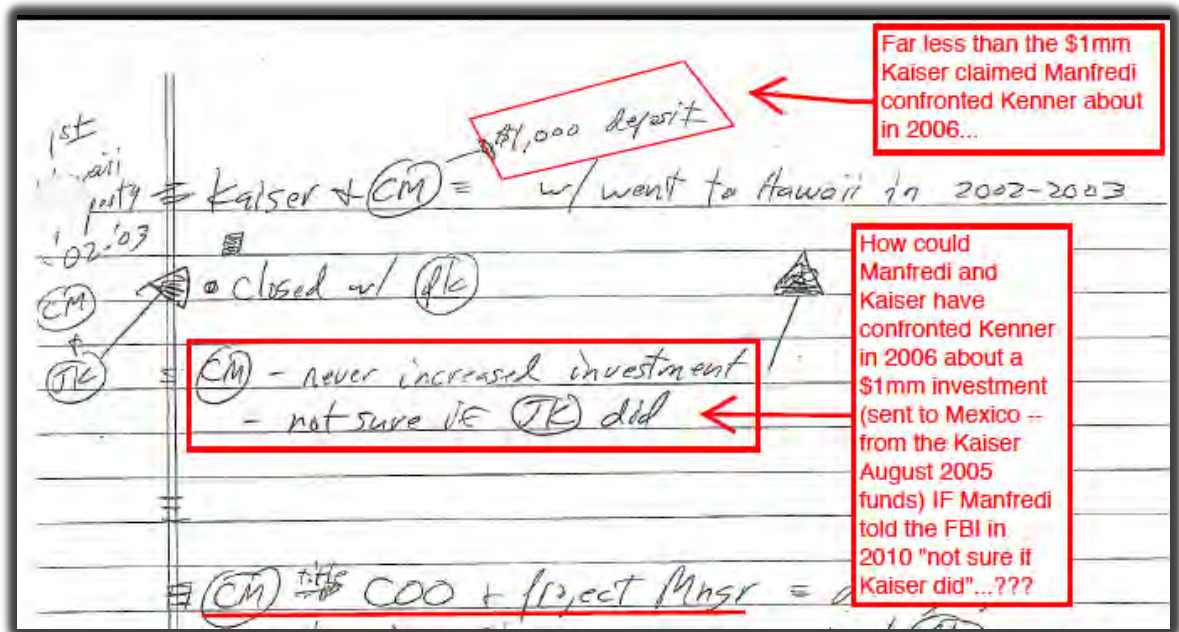 Far less than the $1mm
Kaiser claimed Manfredi
confronted Kenner about
in 2006...
$1,000 deposit
1st
'02-'03
Kaiser + CM = w/ went to Hawaii in 2002-2003
closed w/
CM
JK
CM - never increased investment
- not sure if JK did
How could
Manfredi and
Kaiser have
confronted Kenner
in 2006 about a
$1mm investment
(sent to Mexico --
from the Kaiser
August 2005
funds) IF Manfredi
told the FBI in
2010 "not sure if
Kaiser did"...???
CM title COO + Project Mngr =